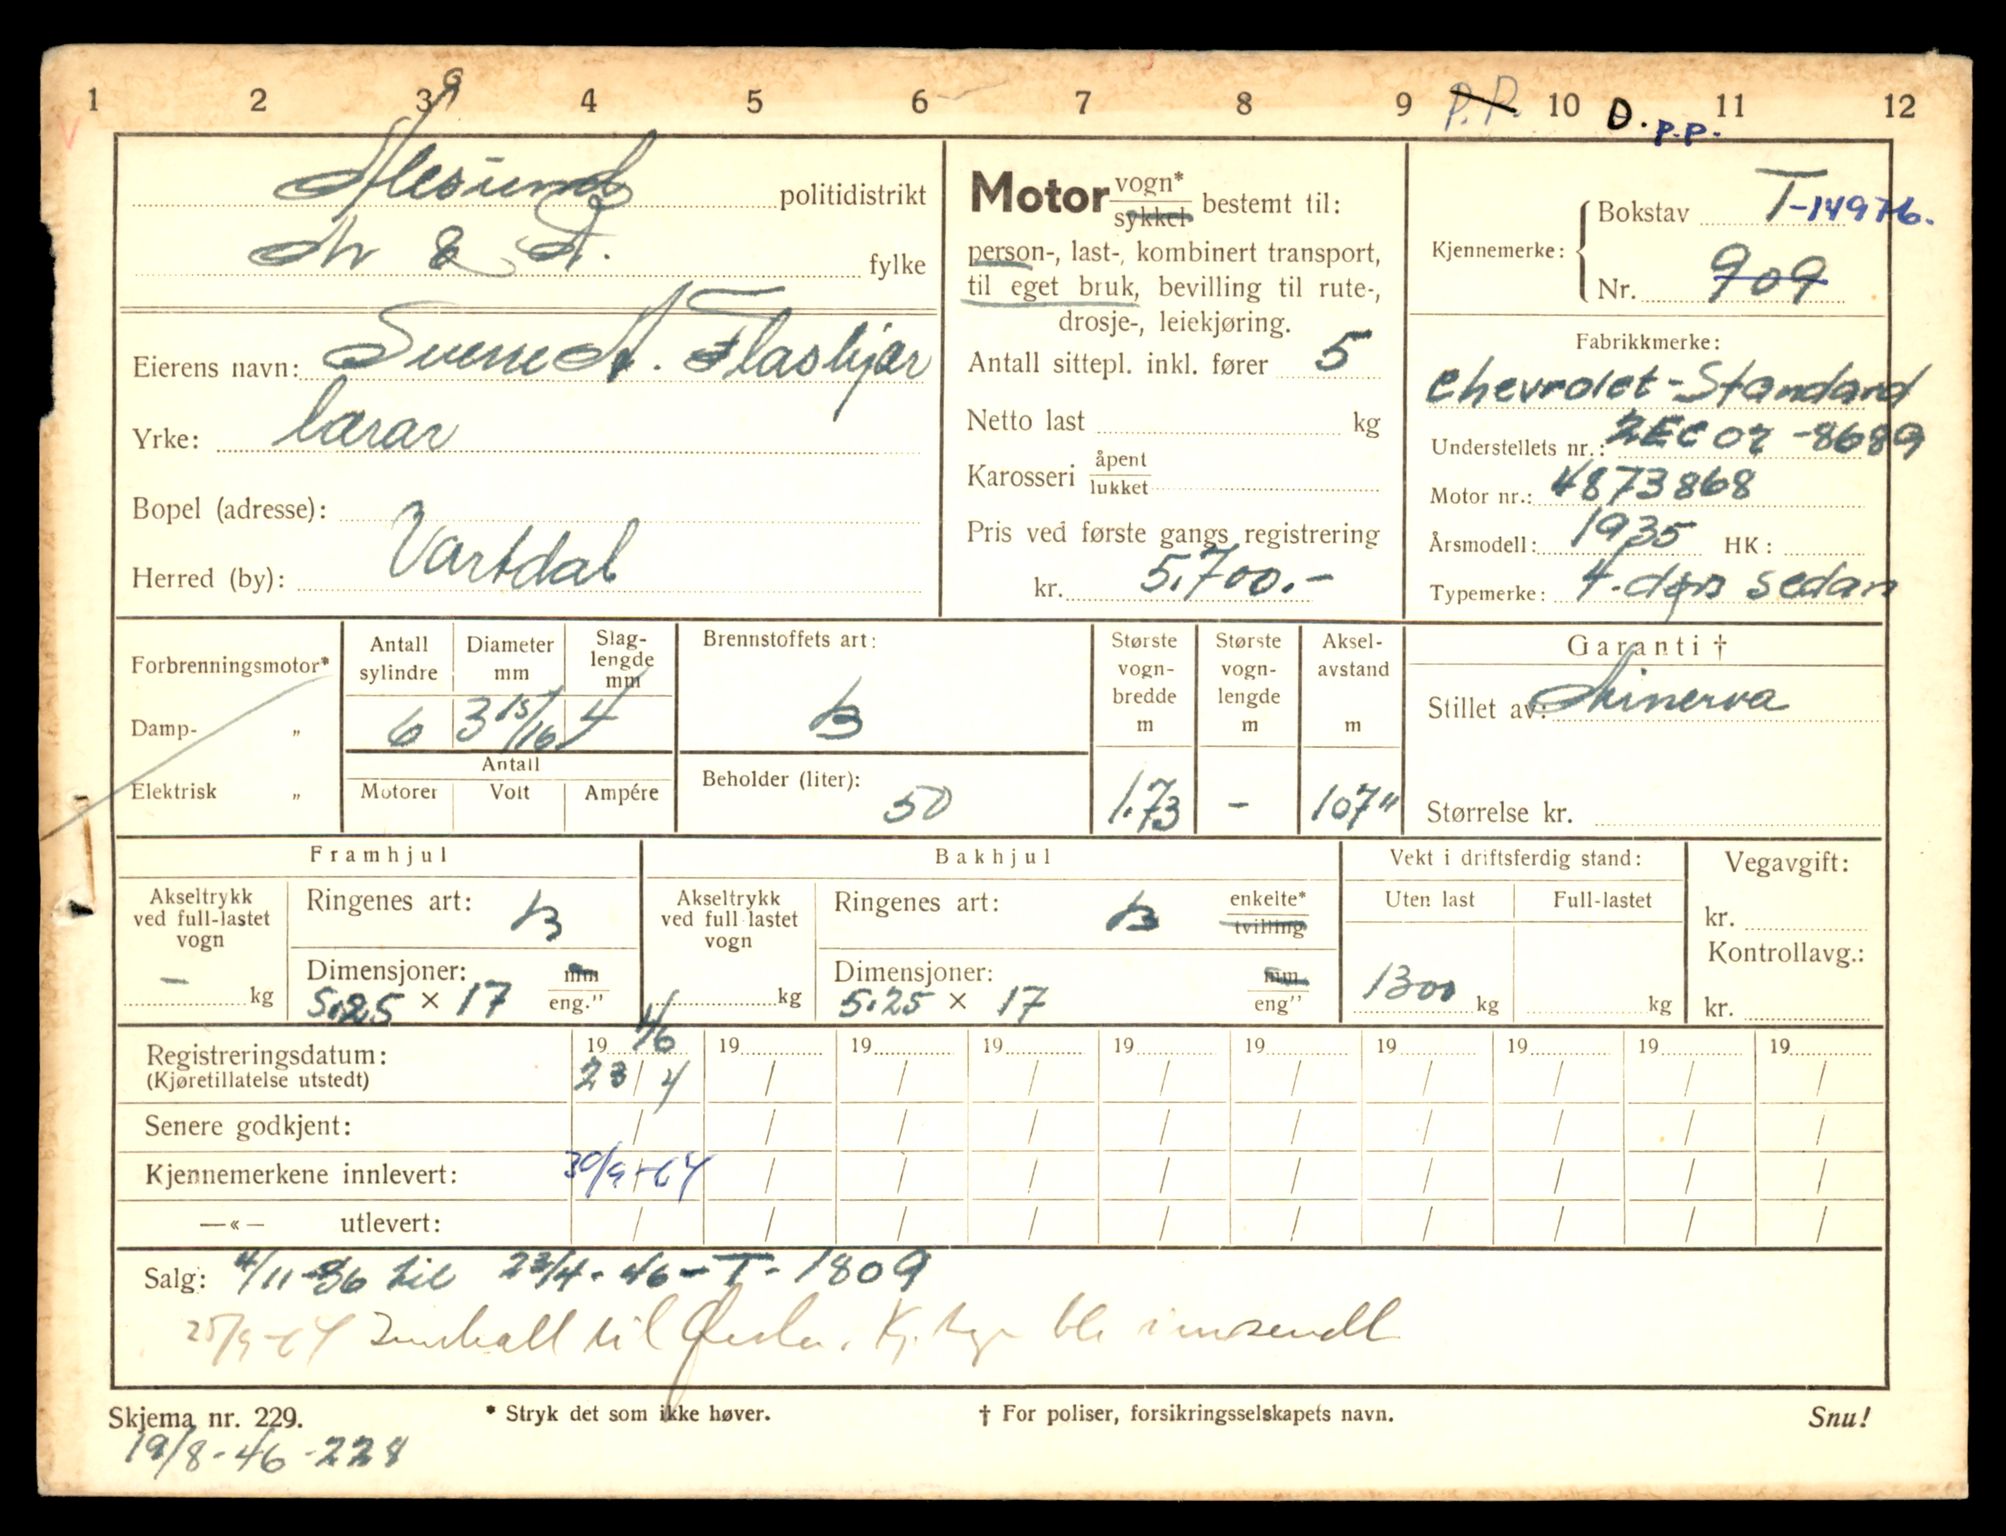 1 2 3 4 5 6 7 8 9 P.P. 10 D. P.P. 11 12
Ålesund politidistrikt
M & R. fylke
Eierens navn: Sverre A. Flaskjær
Yrke: lærar
Bopel (adresse):
Vartdal
Herred (by):
Motor vogn* sykkel bestemt til:
person-, last-, kombinert transport,
til eget bruk, bevilling til rute-,
drosje-, leiekjøring.
Antall sittepl. inkl. fører 5
Netto last kg
Karosseri åpent lukket
Pris ved første gangs registrering
kr. 5.700.-
Kjennemerke: Bokstav T-14976.
Nr. 909
Fabrikkmerke:
Chevrolet-Standard
Understellets nr.: 2EC 07 -8689
Motor nr.: 4873868
Årsmodell: 1935 HK:
Typemerke: 4.dørs sedan
Forbrenningsmotor*
Damp- „
Elektrisk „
Antall sylindre 6
Diameter mm 3 15/16
Slaglengde mm 4
Antall
Motorer Volt Ampére
Brennstoffets art:
B
Beholder (liter):
50
Største vognbredde m 1.73
Største vognlengde m -
Akselavstand m 107"
Garanti †
Stillet av: Minerva
Størrelse kr.
Framhjul
Akseltrykk ved full-lastet vogn
- kg
Ringenes art: B
Dimensjoner: mm
5.25 × 17 eng."
Bakhjul
Akseltrykk ved full lastet vogn
kg
Ringenes art: B enkelte* tvilling
Dimensjoner: mm
5.25 × 17 eng"
Vekt i driftsferdig stand:
Uten last Full-lastet
1300 kg kg
Vegavgift:
kr.
Kontrollavg.:
kr.
Registreringsdatum: 19 46 19 19 19 19 19 19 19 19 19
(Kjøretillatelse utstedt) 23/4 / / / / / / / / /
Senere godkjent: / / / / / / / / / /
Kjennemerkene innlevert: 30/9-64 / / / / / / / / /
—«— utlevert: / / / / / / / / / /
Salg: 4/11-36 til 23/4-46-T-1809
25/9-64 til Ørsta. ble innsendt
Skjema nr. 229. * Stryk det som ikke høver. † For poliser, forsikringsselskapets navn. Snu!
19/8-46-228